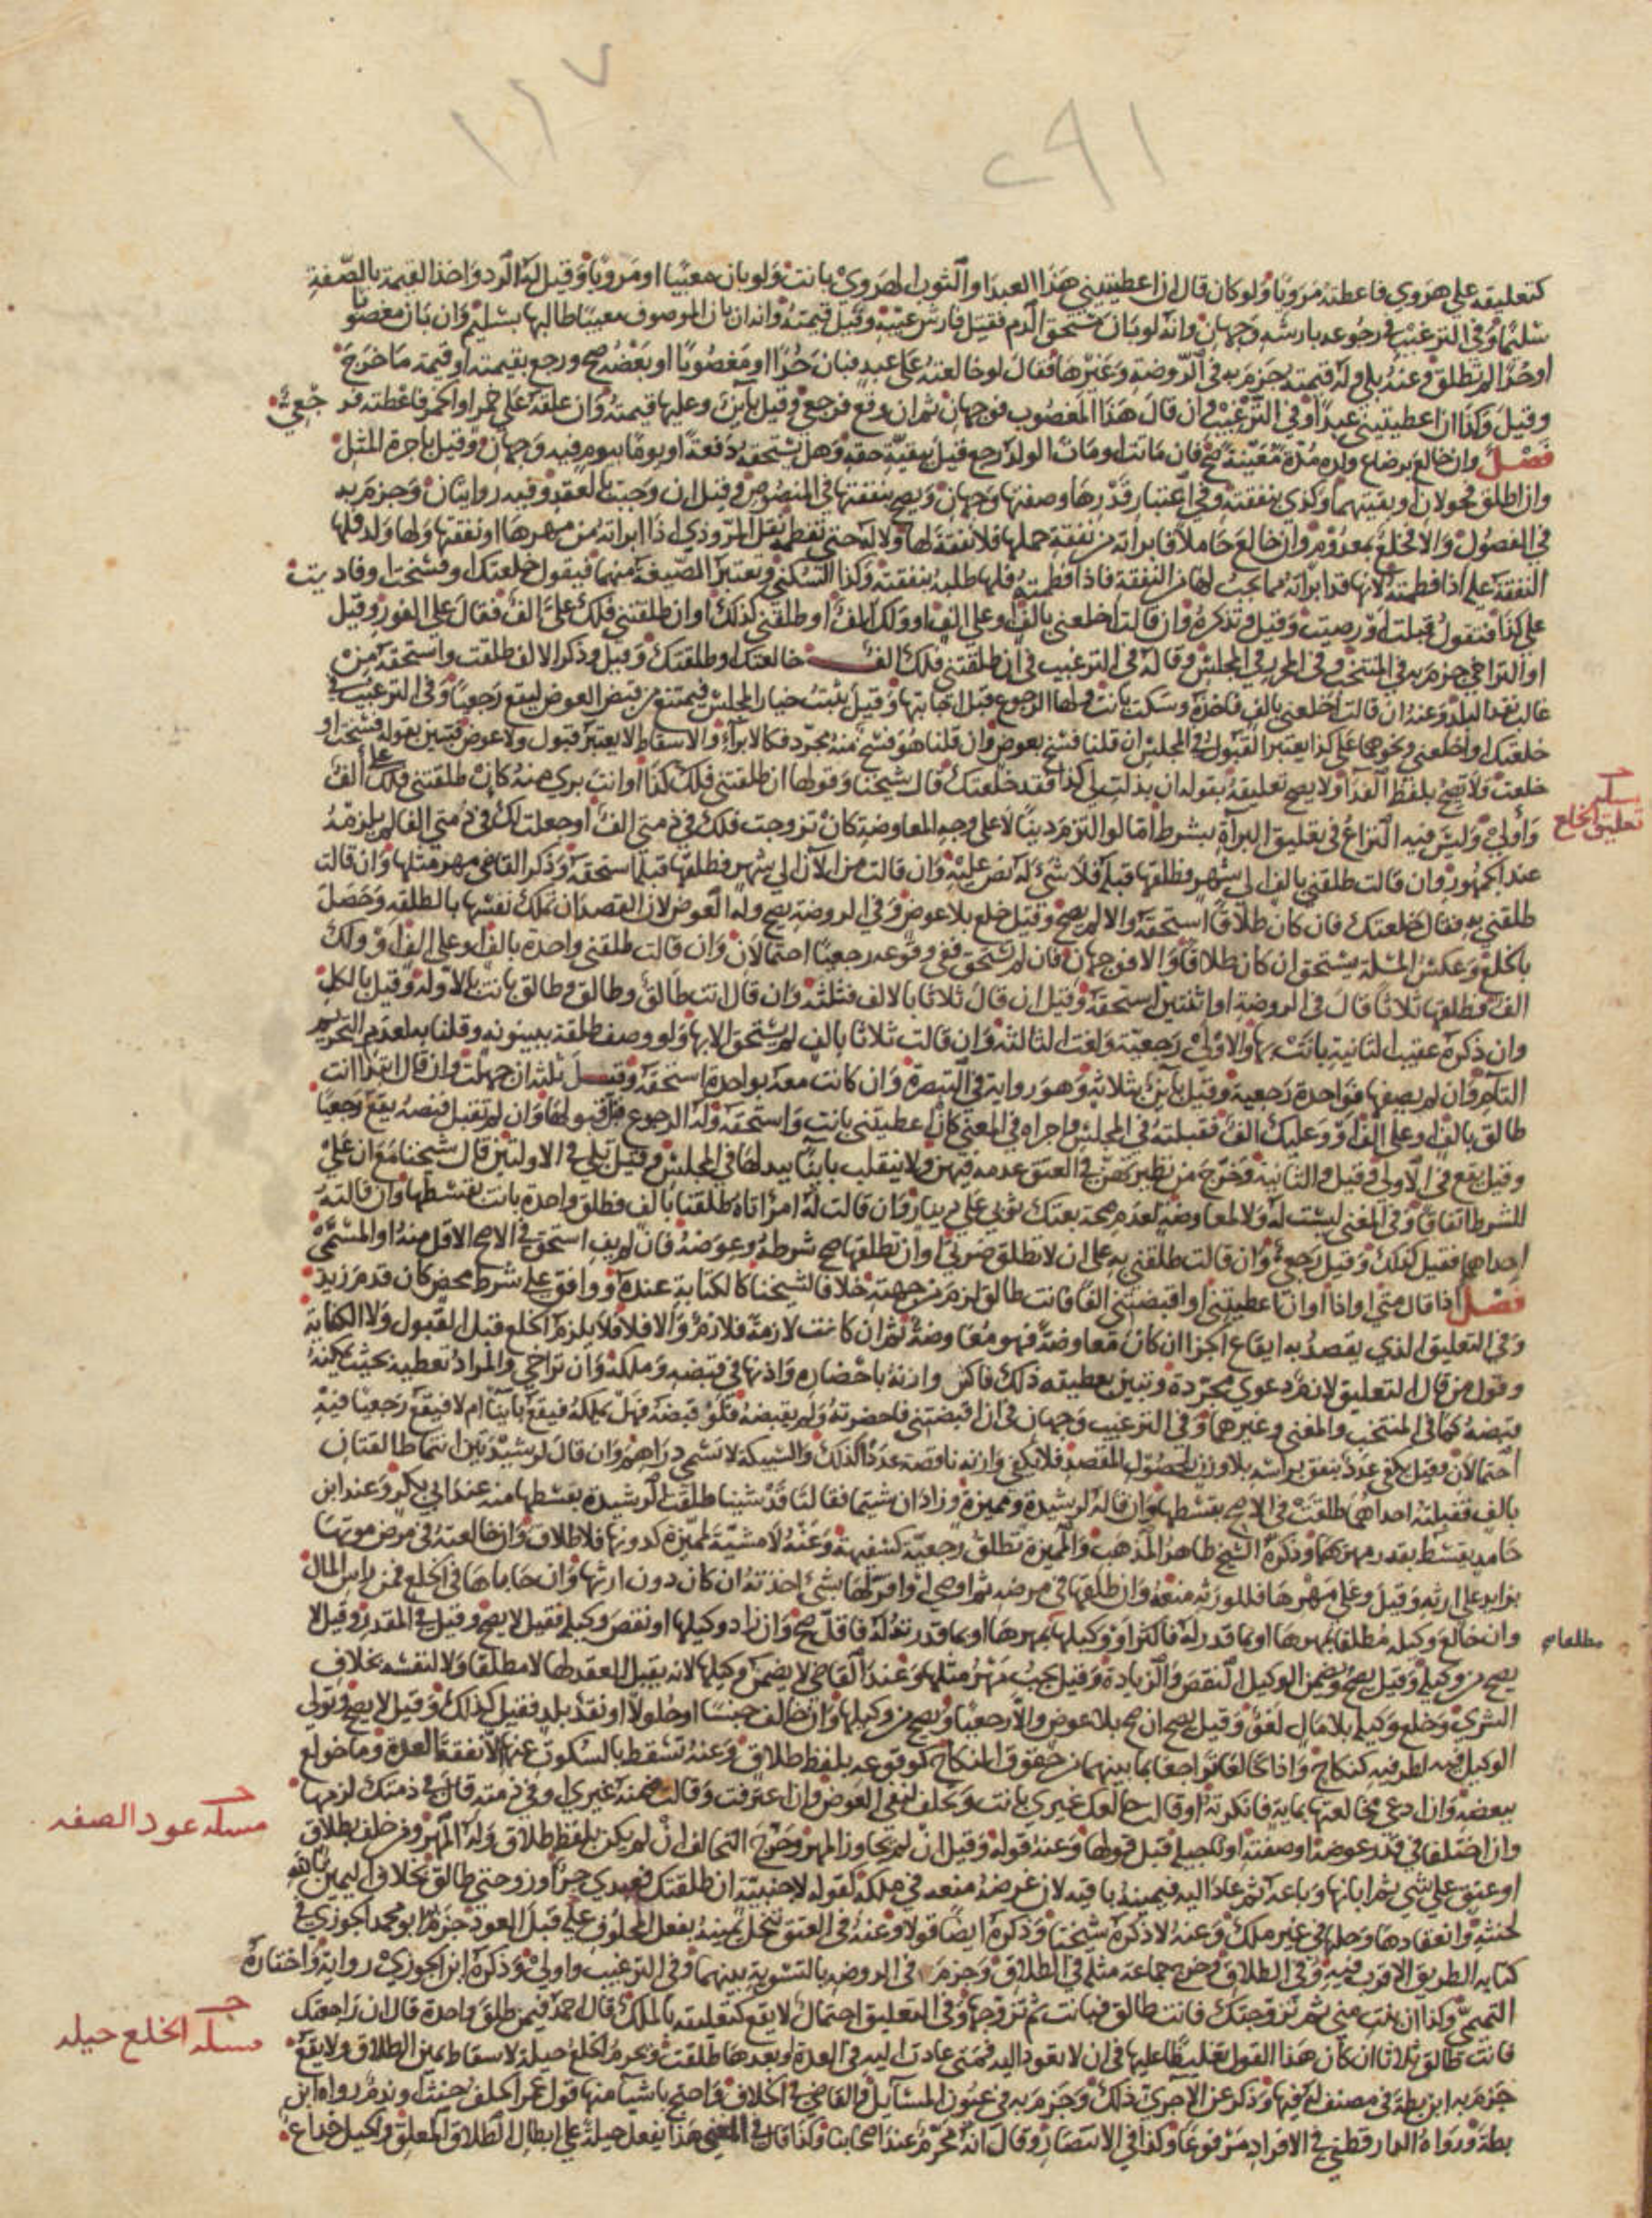 ١١٧
٢٩١
كتعليقه على هروي فاعطته مرويا ولو كان قال ان اعطيتيني هذا العبد او الثوب الهروي بانت ولو بان معيبا او مرويا وقيل له الرد واخذ القيمة بالصفة
سليما وفي الترغيب في رجوعه بارشه وجهان وانه لو بان مستحق الدم فقيل فارش عيبه وقيل قيمته وانه ان بان الموصوف معيبا طالبها بسليم وان بان مغصوبا
او حرا لم تطلق وعنه بلى وله قيمته جزم به في الروضة وغيرها فقال لو خالعته على عبد فبان حرا او مغصوبا او بعضه صح ورجع بقيمته او قيمة ما خرج
وقيل وكذا ان اعطيتيني عبدا وفي الترغيب وان قال هذا المغصوب فوجهان ثم ان وقع فرجعي وقيل باين وعليها قيمته وان علقه على خمر او الخمر فاعطته فرجعي
فصل وان خالع برضاع ولده مدة معينة صح فان ماتت او مات الولد رجع قيل ببقية حقه وهل يستحقه دفعة او يوما بيوم فيه وجهان وقيل باجرة المثل
وان اطلق فحولان او بقيتهما وكذي بنفقته وفي اعتبار قدرها وصفتها وجهان ويصح بنفقتها في المنصوص وقيل ان وجبت بالعقد وفيه روايتان وجزم به
في الفصول والا فخلع بمعدوم وان خالع حاملا فابراته من نفقة حملها فلا نفقة لها ولا له حتى تفطمه نقل المروذي اذا ابراته من مهرها او نفقتها ولها ولد فلها
النفقة عليه اذا فطمته لانها قد ابراته مما يجب لها من النفقة فاذا فطمته فلها طلبه بنفقته وكذا السكنى وتعتبر الصيغة منهما فيقول خلعتك او فسخت او فاديت
على كذا فتقول قبلت او رضيت وقيل وتذكره وان قالت اخلعني بالف او على الف او ولك الف او طلقني كذلك او ان طلقتني فلك علي الف فقال على الفور وقيل
او التراخي جزم به في المنتخب وفي المحرر في المجلس وقاله في الترغيب في ان طلقتني فلك الف خالعتك او طلقتك وقيل وذكر الالف طلقت واستحقه من
غالب نقد البلد وعنه ان قالت اخلعني بالف فاخذه وسكت بانت ولها الرجوع قبل اجابتها وقيل يثبت خيار المجلس فيمتنع من قبض العوض ليقع رجعيا وفي الترغيب في
خلعتك او اخلعني ونحوهما على كذا يعتبر القبول في المجلس ان قلنا فسخ بعوض وان قلنا هو فسخ منه مجرد فكالابراء والاسقاط لا يعتبر قبول ولا عوض فتبين بقوله فسخت او
خلعت ولا تصح بلفظ الفدا ولا يصح تعليقه بقوله ان بذلت لي كذا فقد خلعتك قال شيخنا وقولها ان طلقتني فلك كذا او انت بري منه كان طلقتني فلك علي الف
واولى وليس فيه النزاع في تعليق البراة بشرط اما لو التزم دينا لا على وجه المعاوضة كان تزوجت فلك في ذمتي الف او جعلت لك في ذمتي الفا لم يلزمه
عند الجمهور وان قالت طلقني بالف الى شهر فطلقها قبله فلا شي له نص عليه وان قالت من الآن الى شهر فطلقها قبله استحقه وذكر القاضي مهر مثلها وان قالت
طلقني به فقال خلعتك فان كان طلاقا استحقه والا لم يصح وقيل خلع بلا عوض وفي الروضة يصح وله العوض لان القصد ان تملك نفسها بالطلقة وحصل
بالخلع وعكس المسلة يستحق ان كان طلاقا والا فوجهان فان لم يستحق ففي وقوعه رجعيا احتمالان وان قالت طلقني واحدة بالف او على الف او ولك
الف فطلقها ثلاثا قال في الروضة او اثنتين استحقه وقيل ان قال ثلاثا بالالف فثلثه وان قال انت طالق وطالق وطالق بانت بالاولة وقيل بالكل
وان ذكره عقيب الثانية بانت بها والاولى رجعية ولغت الثالثة وان قالت ثلاثا بالف لم يستحق الا بها ولو وصف طلقة ببينونة وقلنا به لعدم التحريم
التام وان لم يصفها فواحدة رجعية وقيل باين بثلاثة وهو رواية في التبصرة وان كانت معه بواحدة استحقه وقيل ثلثه ان جهلت وان قال ابتدا انت
طالق بالف او على الف او وعليك الف فقبلته في المجلس واجراه في المغني كان اعطيتني بانت واستحقه وله الرجوع قبل قبولها وان لم تقبل فنصه يقع رجعيا
وقيل يقع في الاولى وقيل والثانية وخرج من نظيرتهن في العتق عدمه فيهن ولا ينقلب باينا ببذلها في المجلس وقيل بلى في الاولتين قال شيخنا مع ان على
للشرط اتفاقا وفي المغني ليست له ولا للمعاوضة لعدم صحة بعتك ثوبي على دينار وان قالت له امراتاه طلقنا بالف فطلق واحدة بانت بقسطها وان قالته
احداهما فقيل كذلك وقيل رجعي وان قالت طلقني به على ان لا تطلق ضرتي او ان تطلقها صح شرطه وعوضه فان لم يف استحق في الاصح الاقل منه او المسمى
فصل اذا قال متى او اذا او ان اعطيتني او اقبضتني الفا فانت طالق لزم من جهته خلافا لشيخنا كالكتابة عنده ووافق على شرط محض كان قدم زيد
وفي التعليق الذي يقصد به ايقاع الجزا ان كان معاوضة فهو معاوضة ثم ان كانت لازمة فلازم والا فلا فلا يلزم الخلع قبل القبول ولا الكتابة
وقول من قال التعليق لازم دعوى مجردة وتبين بعطيته ذلك فاكثر وازنة باحضاره واذنها في قبضه وملكه وان تراخى والمراد تعطيه بحيث يمكنه
قبضه كما في المنتخب والمغني وغيرهما وفي الترغيب وجهان في ان اقبضتني فاحضرته ولم يقبضه فلو قبضه فهل يملكه فيقع باينا ام لا فيقع رجعيا فيه
احتمالان وقيل يكفي عدد يتفق براسه بلا وزن لحصول المقصد فلا يكفي وازنة ناقصة عددا كذلك والسبيكة لا تسمى دراهم وان قال لرشيدتين انتما طالقتان
بالف فقبلته احداهما طلقت في الاصح بقسطها وان قاله لرشيدة ومميزة وزاد ان شيتما فقالتا قد شينا طلقت الرشيدة بقسطها منه عند ابي بكر وعند ابن
حامد يقسط بقدر مهريهما وذكره الشيخ ظاهر المذهب والمميزة تطلق رجعية كسفيهة وعنه لا مشية لمميزة كدونها فلا طلاق وان خالعته في مرض موتها
بزايد على ارثه وقيل وعلى مهرها فللورثة منعه وان طلقها في مرضه ثم اوصى او اقر لها بشي اخذته ان كان دون ارثها وان حاباها في الخلع فمن راس المال
وان خالع وكيله مطلقا بمهرها او بما قدر له فاكثر او وكيلها بمهرها او بما قدرته له فاقل صح وان زاد وكيلها او نقص وكيله فقيل لا يصح وقيل في المقدر وقيل لا
يصح من وكيله وقيل يصح ويضمن الوكيل النقص والزيادة وقيل يجب مهر مثلها وعند القاضي لا يضمن وكيلها لانه يقبل العقد لها لا مطلقا ولا لنفسه بخلاف
الشرى وخلع وكيله بلا مال لغو وقيل يصح ان صح بلا عوض والا رجعيا ويصح من وكيلها وان خالف جنسا او حلولا او نقد بلد فقيل كذلك وقيل لا يصح وتولي
الوكيل فيه لطرفيه كنكاح واذا تخالعا تراجعا بما بينهما من حقوق النكاح كوقوعه بلفظ طلاق وعنه تسقط بالسكوت عنها الا نفقة العدة وما خولع
ببعضه واذا ادعى مخالعتها بماية فانكرته او قالت خالعك غيري بانت وتحلف لنفي العوض وان اعترفت وقالت ضمنه غيري او في ذمته قال في ذمتك لزمها
وان اختلفا في قدر عوضه او صفته او تاجيله قبل قولها وعنه قوله وقيل ان لم يجاوز المهر وخرج التحالف ان لم يكن بلفظ طلاق وله المهر ومن حلف بطلاق
او عتق على شي ثم ابانها وباعه ثم عادا اليه فيمينه باقية لان غرضه منعه في ملكه كقوله لاجنبية ان طلقتك فعبدي حر او زوجتي طالق بخلاف اليمين بالله
لحنثه وانعقادها وحلها في غير ملك وعنه لا ذكره شيخنا وذكره ايضا قولا وعنه في العتق تنحل يمينه بفعل المحلوف عليه قبل العود جزم ابو محمد الجوزي في
كتابه الطريق الاقرب فيه وفي الطلاق وخرج جماعة مثله في الطلاق وجزم في الروضة بالتسوية بينهما وفي الترغيب واولى وذكره ابن الجوزي رواية واختاره
التميمي وكذا ان بنت مني ثم تزوجتك فانت طالق فبانت ثم تزوجها وفي التعليق احتمال لا يقع كتعليقه بالملك قال احمد فيمن طلق واحدة قال ان راجعتك
فانت طالق ثلاثا ان كان هذا القول تغليظا عليها في ان لا تعود اليه فمتى عادت اليه في العدة او بعدها طلقت ويحرم الخلع حيلة لاسقاط يمين الطلاق ولا يقع
جزم به ابن بطة في مصنف له فيها وذكر عن الآجري ذلك وجزم به في عيون المسايل والقاضي في الخلاف واحتج باشيا منها قول عمر الحلف حنث او ندم رواه ابن
بطة ورواه الدارقطني في الافراد مرفوعا وكذا في الانتصار وقال انه محرم عند اصحابنا وكذا قال في المغني هذا يفعل حيلة على ابطال الطلاق المعلق والحيل خداع
مسلة تعليق الخلع
مطلقا صح
مسلة عود الصفه
مسلة الخلع حيله